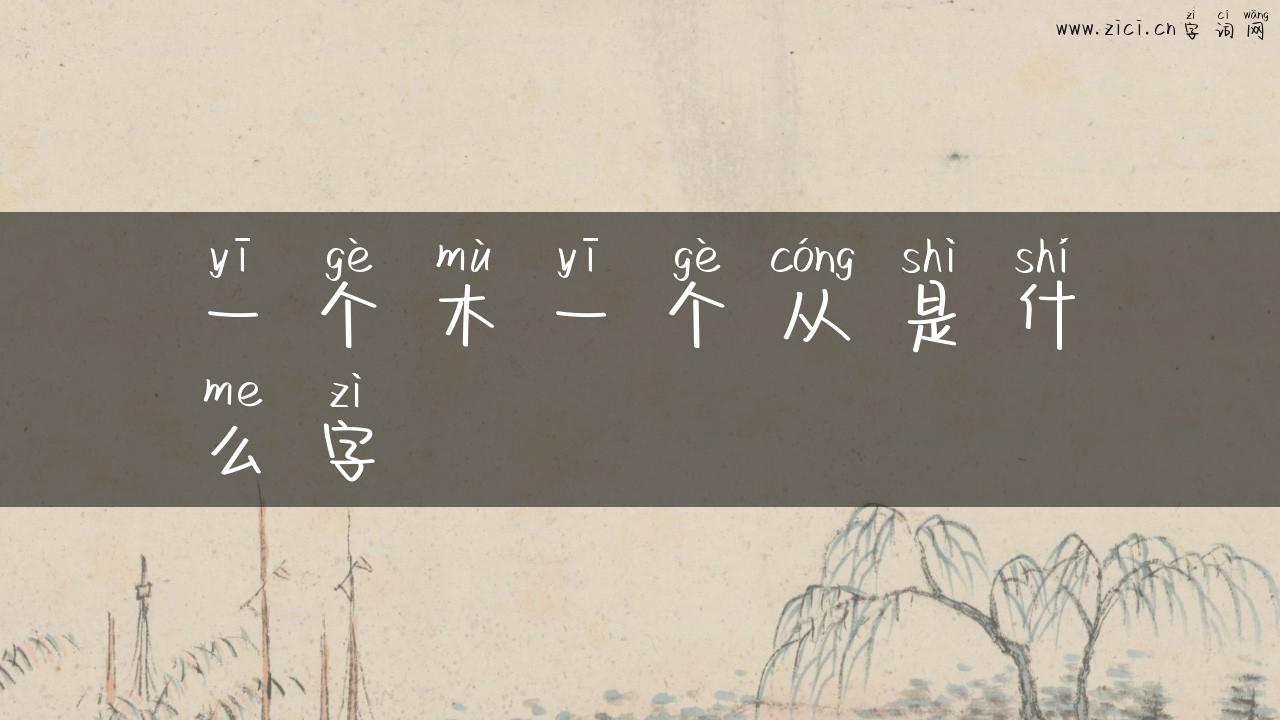 zì cí wǎng
www.zici.cn 字词网
yī gè mù yī gè cóng shì shí
一个木一个从是什
me zì
么字